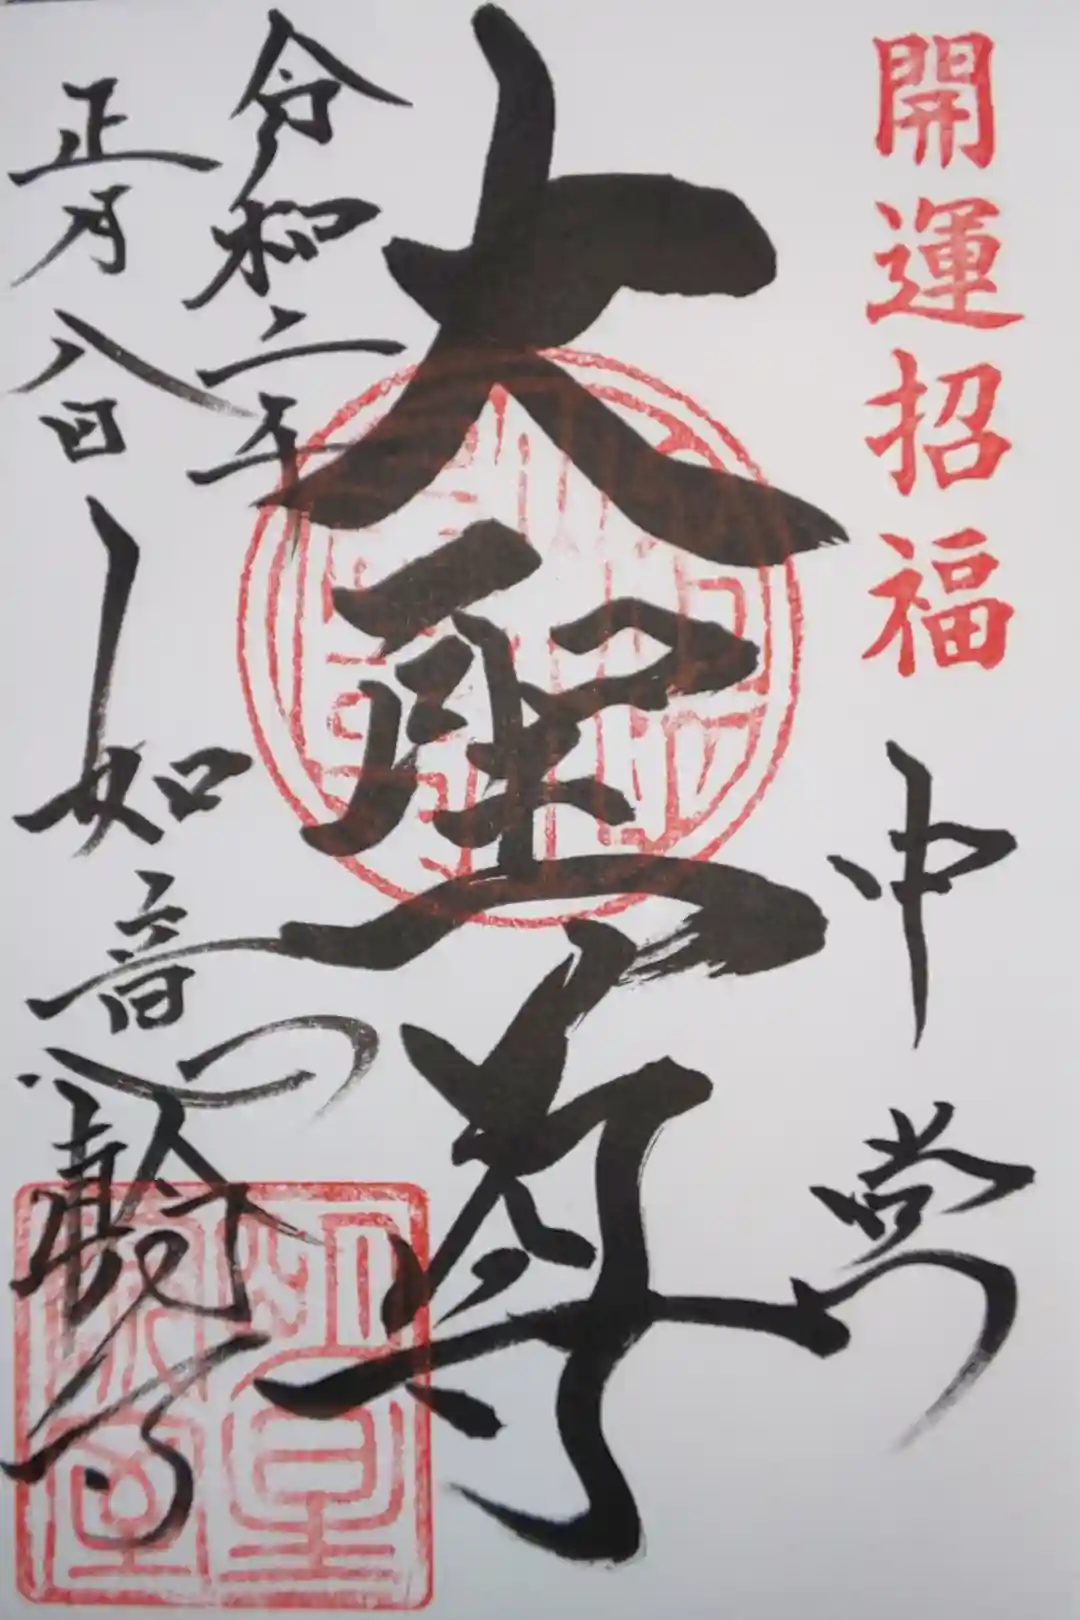 開運招福
中堂
大聖尊
令和二年
正月八日
如意輪寺